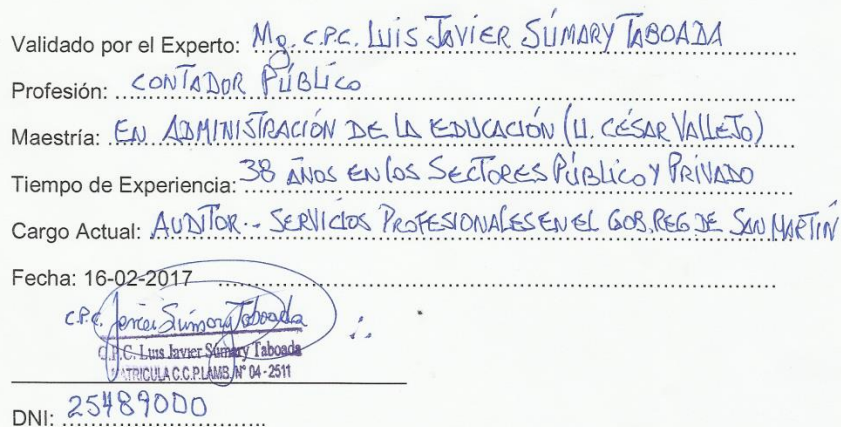 Validado por el Experto: Mg. C.P.C. LUIS JAVIER SÚMARY TABOADA
Profesión: CONTADOR PÚBLICO
Maestría: EN ADMINISTRACIÓN DE LA EDUCACIÓN (U. CÉSAR VALLEJO)
Tiempo de Experiencia: 38 AÑOS EN LOS SECTORES PÚBLICO Y PRIVADO
Cargo Actual: AUDITOR.- SERVICIOS PROFESIONALES EN EL GOB. REG DE SAN MARTÍN
Fecha: 16-02-2017
C.P.C. Javier Súmary Taboada
C.P.C. Luis Javier Súmary Taboada
MATRICULA C.C.P.LAMB. N° 04-2511
DNI: 25489000